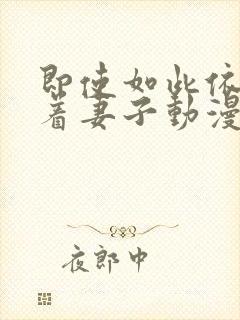 即使如此依
着妻子動漫
夜郎中